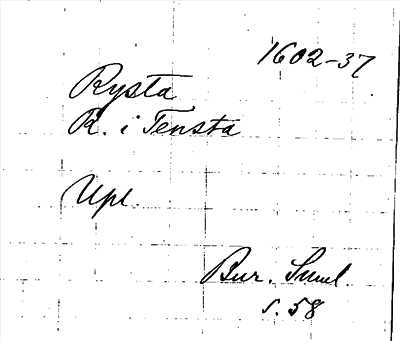 1602-37
Rysta
K. i Tensta
Upl.
Bur. Suml.
s. 58